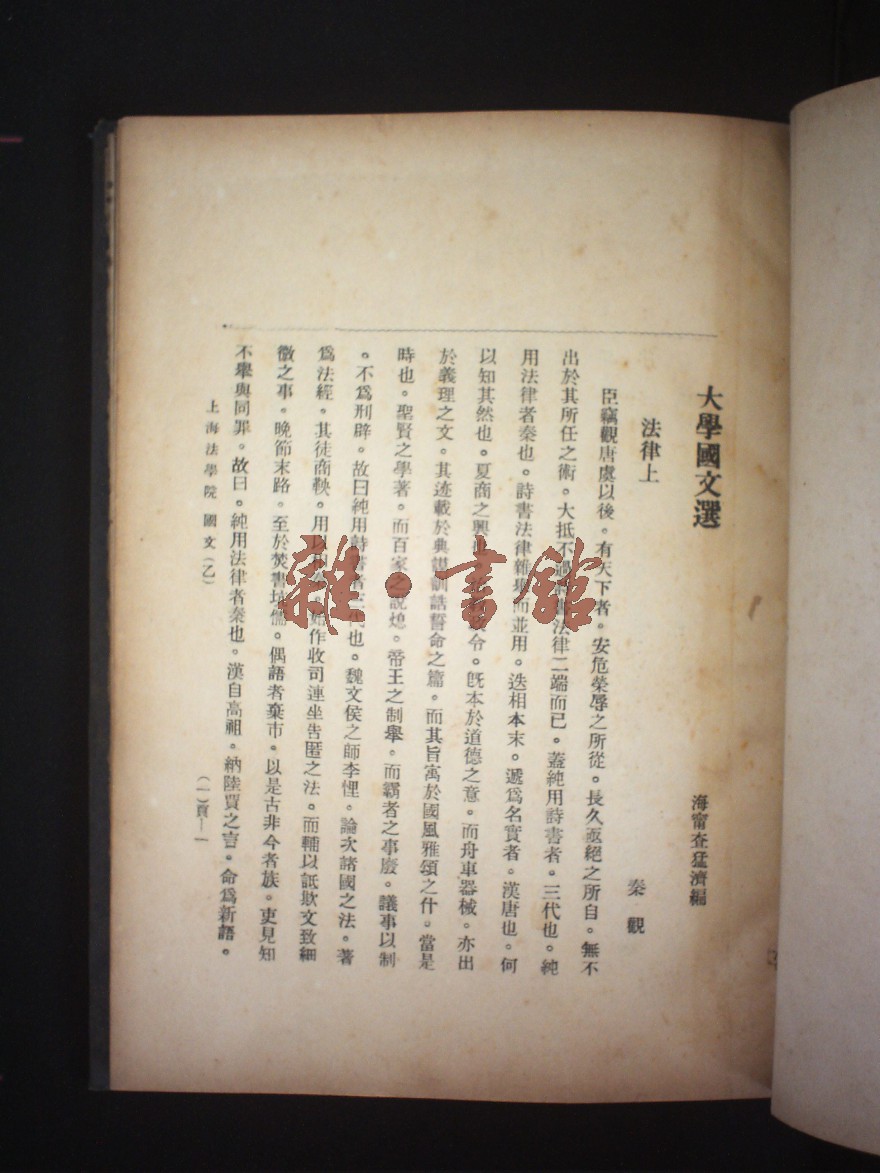 大學國文選
海甯查猛濟編
法律上
秦觀
臣竊觀唐虞以後。有天下者。安危榮辱之所從。長久亟絕之所自。無不
出於其所任之術。大抵不過法律二端而已。蓋純用詩書者。三代也。純
用法律者秦也。詩書法律雜舉而並用。迭相本末。遞爲名實者。漢唐也。何
以知其然也。夏商之興也令。旣本於道德之意。而舟車器械。亦出
於義理之文。其迹載於典謨訓誥誓命之篇。而其旨寓於國風雅頌之什。當是
時也。聖賢之學著。而百家之說熄。帝王之制舉。而霸者之事廢。議事以制
。不爲刑辟。故曰純用詩書者三代也。魏文侯之師李悝。論次諸國之法。著
爲法經。其徒商鞅。用以相秦。始作收司連坐告匿之法。而輔以詆欺文致細
微之事。晚節末路。至於焚書坑儒。偶語者棄市。以是古非今者族。吏見知
不舉與同罪。故曰。純用法律者秦也。漢自高祖。納陸賈之言。命爲新語。
上海法學院 國文(乙) (一)頁—一
雜·書館